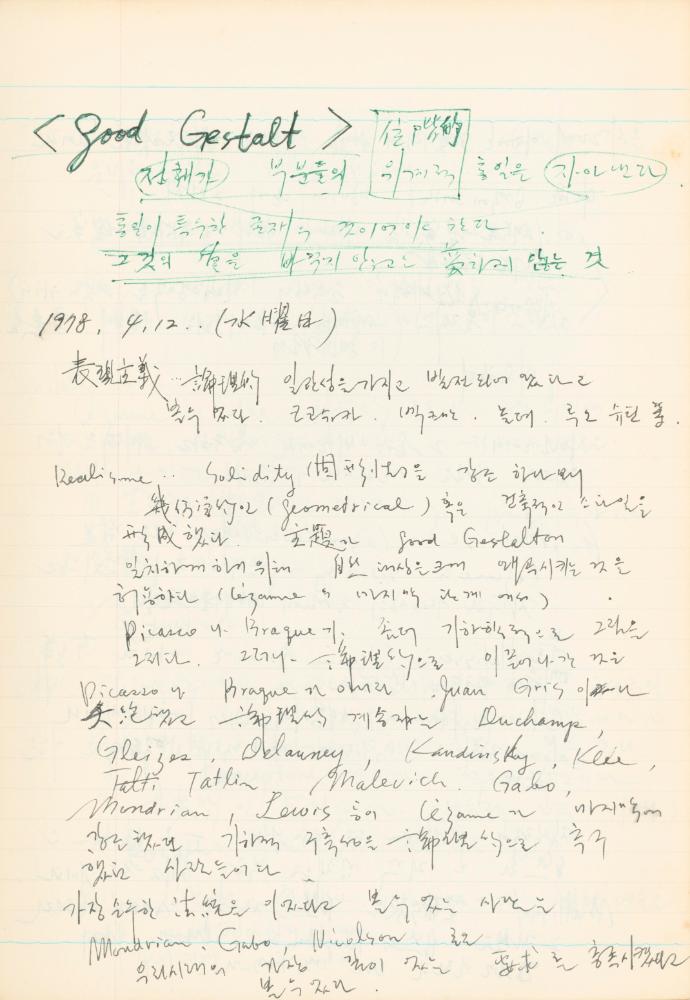 < Good Gestalt >
位階的
전체가 부분들의 위계적 통일을 자아낸다
통일이 특수한 존재의 것이어야 한다.
그것의 을 바꾸지 않고는 변하지 않는 것
1978. 4. 12.. (水曜日)
表現主義 .. 論理的 일관성을 가지고 발전되어 왔다고
볼 수 있다. 코코슈카. 벡크만. 놀데. 루오 슈틴 等.
Realisme .. Solidity (固形 )을 강조 하다 보며
幾何学的인 (geometrical) 혹은 건축적인 스타일을
形成했다. 主題가 good Gestalt
일치하게 하기 위해 自然 대상을 크게 왜곡시키는 것을
허용하다 (Cézanne의 마지막 단계에서).
Picasso나 Braque가. 좀더 기하학적으로 그림을
그리다. 그러나 論理的으로 이끌어 나간 것은
Picasso나 Braque가 아니라 Juan Gris 이나
했고 論理的 계승자는 Duchamp,
Gleizes, Delauney, Kandinsky, Klee,
Tatli Tatlin Malevich. Gabo,
Mondrian, Lewis 등이 Cézanne가 마지막에
강조했던 기하적 구축성을 論理的으로 추구
했던 사람들이다.
가장 순수한 法統을 이었다고 볼 수 있는 사람은
Mondrian. Gabo, Nicolson 로
우리시대의 가장 깊이 있는 要求를 충족시켰다고
볼 수 있다.